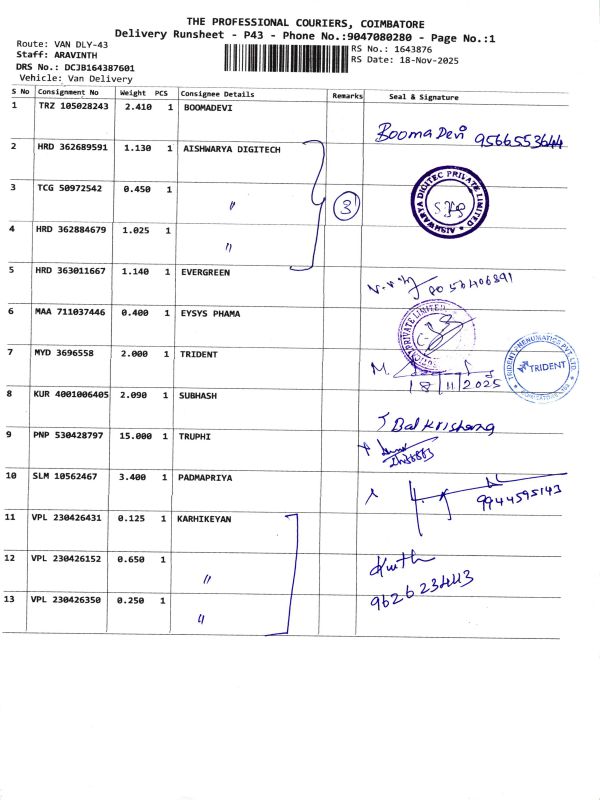 THE PROFESSIONAL COURIERS, COIMBATORE
Delivery Runsheet - P43 - Phone No.:9047080280 - Page No.:1
Route: VAN DLY-43
Staff: ARAVINTH
DRS No.: DCJB164387601
Vehicle: Van Delivery
RS No.: 1643876
RS Date: 18-Nov-2025
S No Consignment No Weight PCS Consignee Details Remarks Seal & Signature
1 TRZ 105028243 2.410 1 BOOMADEVI
Booma Devi 9566553644
2 HRD 362689591 1.130 1 AISHWARYA DIGITECH
3 TCG 50972542 0.450 1 〃
3
AISHWARYA DIGITEC PRILATE LIMITED
4 HRD 362884679 1.025 1 〃
5 HRD 363011667 1.140 1 EVERGREEN
8056406891
6 MAA 711037446 0.400 1 EYSYS PHAMA
PRIVATE LIMITED
7 MYD 3696558 2.000 1 TRIDENT
M.
18/11/2025
TRIDENT PNEUMATICS PVT. LTD.
TRIDENT
8 KUR 4001006405 2.090 1 SUBHASH
Bal Krishang
9 PNP 530428797 15.000 1 TRUPHI
10 SLM 10562467 3.400 1 PADMAPRIYA
9944595143
11 VPL 230426431 0.125 1 KARHIKEYAN
12 VPL 230426152 0.650 1 〃
9626234413
13 VPL 230426350 0.250 1 〃